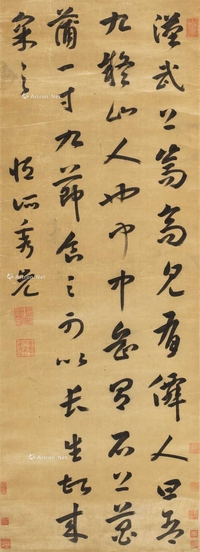 漢武上嵩高見有僊人曰吾
九疑山人也聞中岳有石上菖
蒲一寸九節食之可以長生故來
采之